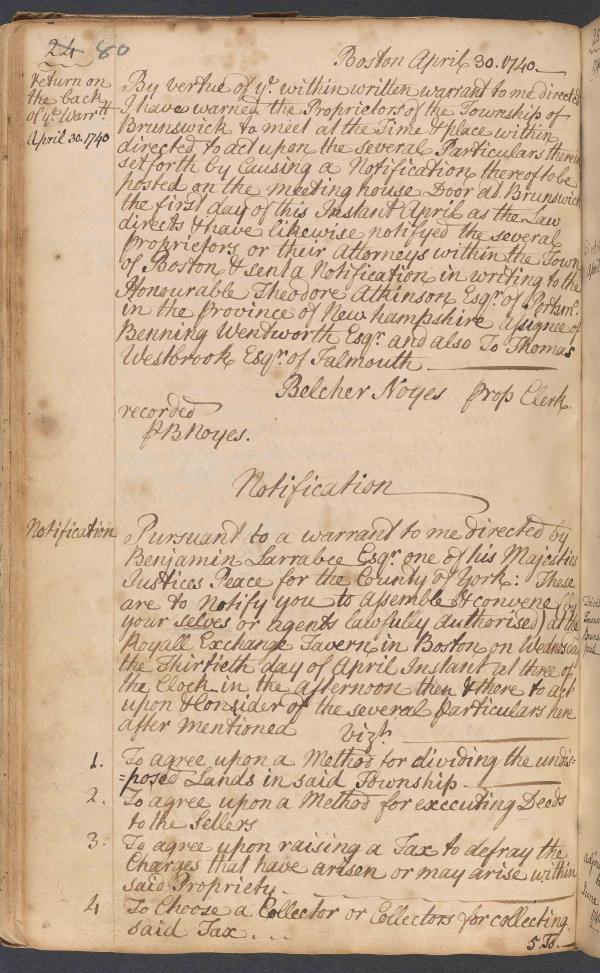 24 80
Boston April 30. 1740.
return on
the back
of ye Warrtt
April 30. 1740
By vertue of ye. within written warrant to me directed
I have warned the Proprietors of the Township of
Brunswick to meet at the Time & place within
directed to act upon the several Particulars therein
set forth by Causing a Notification thereof to be
posted on the meeting house Door at Brunswick
the first day of this Instant April as the Law
directs & have likewise notifyed the several
Proprietors or their Attorneys within the Town
of Boston & sent a Notification in writing to the
Honourable Theodore Atkinson Esqr. of Portsmo.
in the Province of New hampshire Assignee of
Benning Wentworth Esqr. and also To Thomas
Westbrook Esqr. of Falmouth
Belcher Noyes Prop Clerk.
recorded
p B Noyes.
Notification
Notification
Pursuant to a warrant to me directed by
Benjamin Larrabee Esqr. one of his Majesties
Justices Peace for the County of York: These
are to Notify you to assemble & convene (by
your selves or agents lawfully authorised) at the
Royall Exchange Tavern in Boston on Wednesday
the Thirtieth day of April Instant at three of
the Clock in the afternoon then & there to act
upon & Consider of the several particulars here
after mentioned vizt.
1. To agree upon a Method for dividing the undis=
=posed Lands in said Township
2. To agree upon a Method for executing Deeds
to the Settlers
3. To agree upon raising a Tax to defray the
Charges that have arisen or may arise within
said Propriety
4 To Choose a Collector or Collectors for collecting
said Tax . . .
5. To